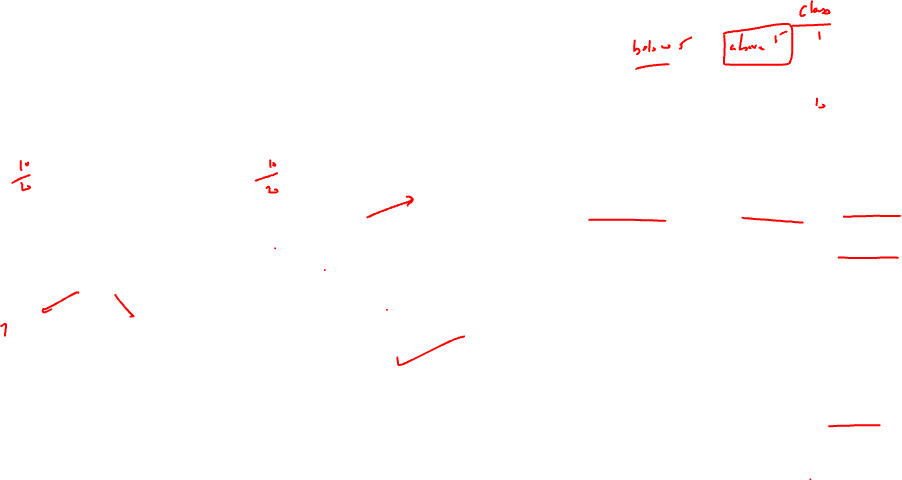 class
below 5 above 15 1
10
10 10
20 20